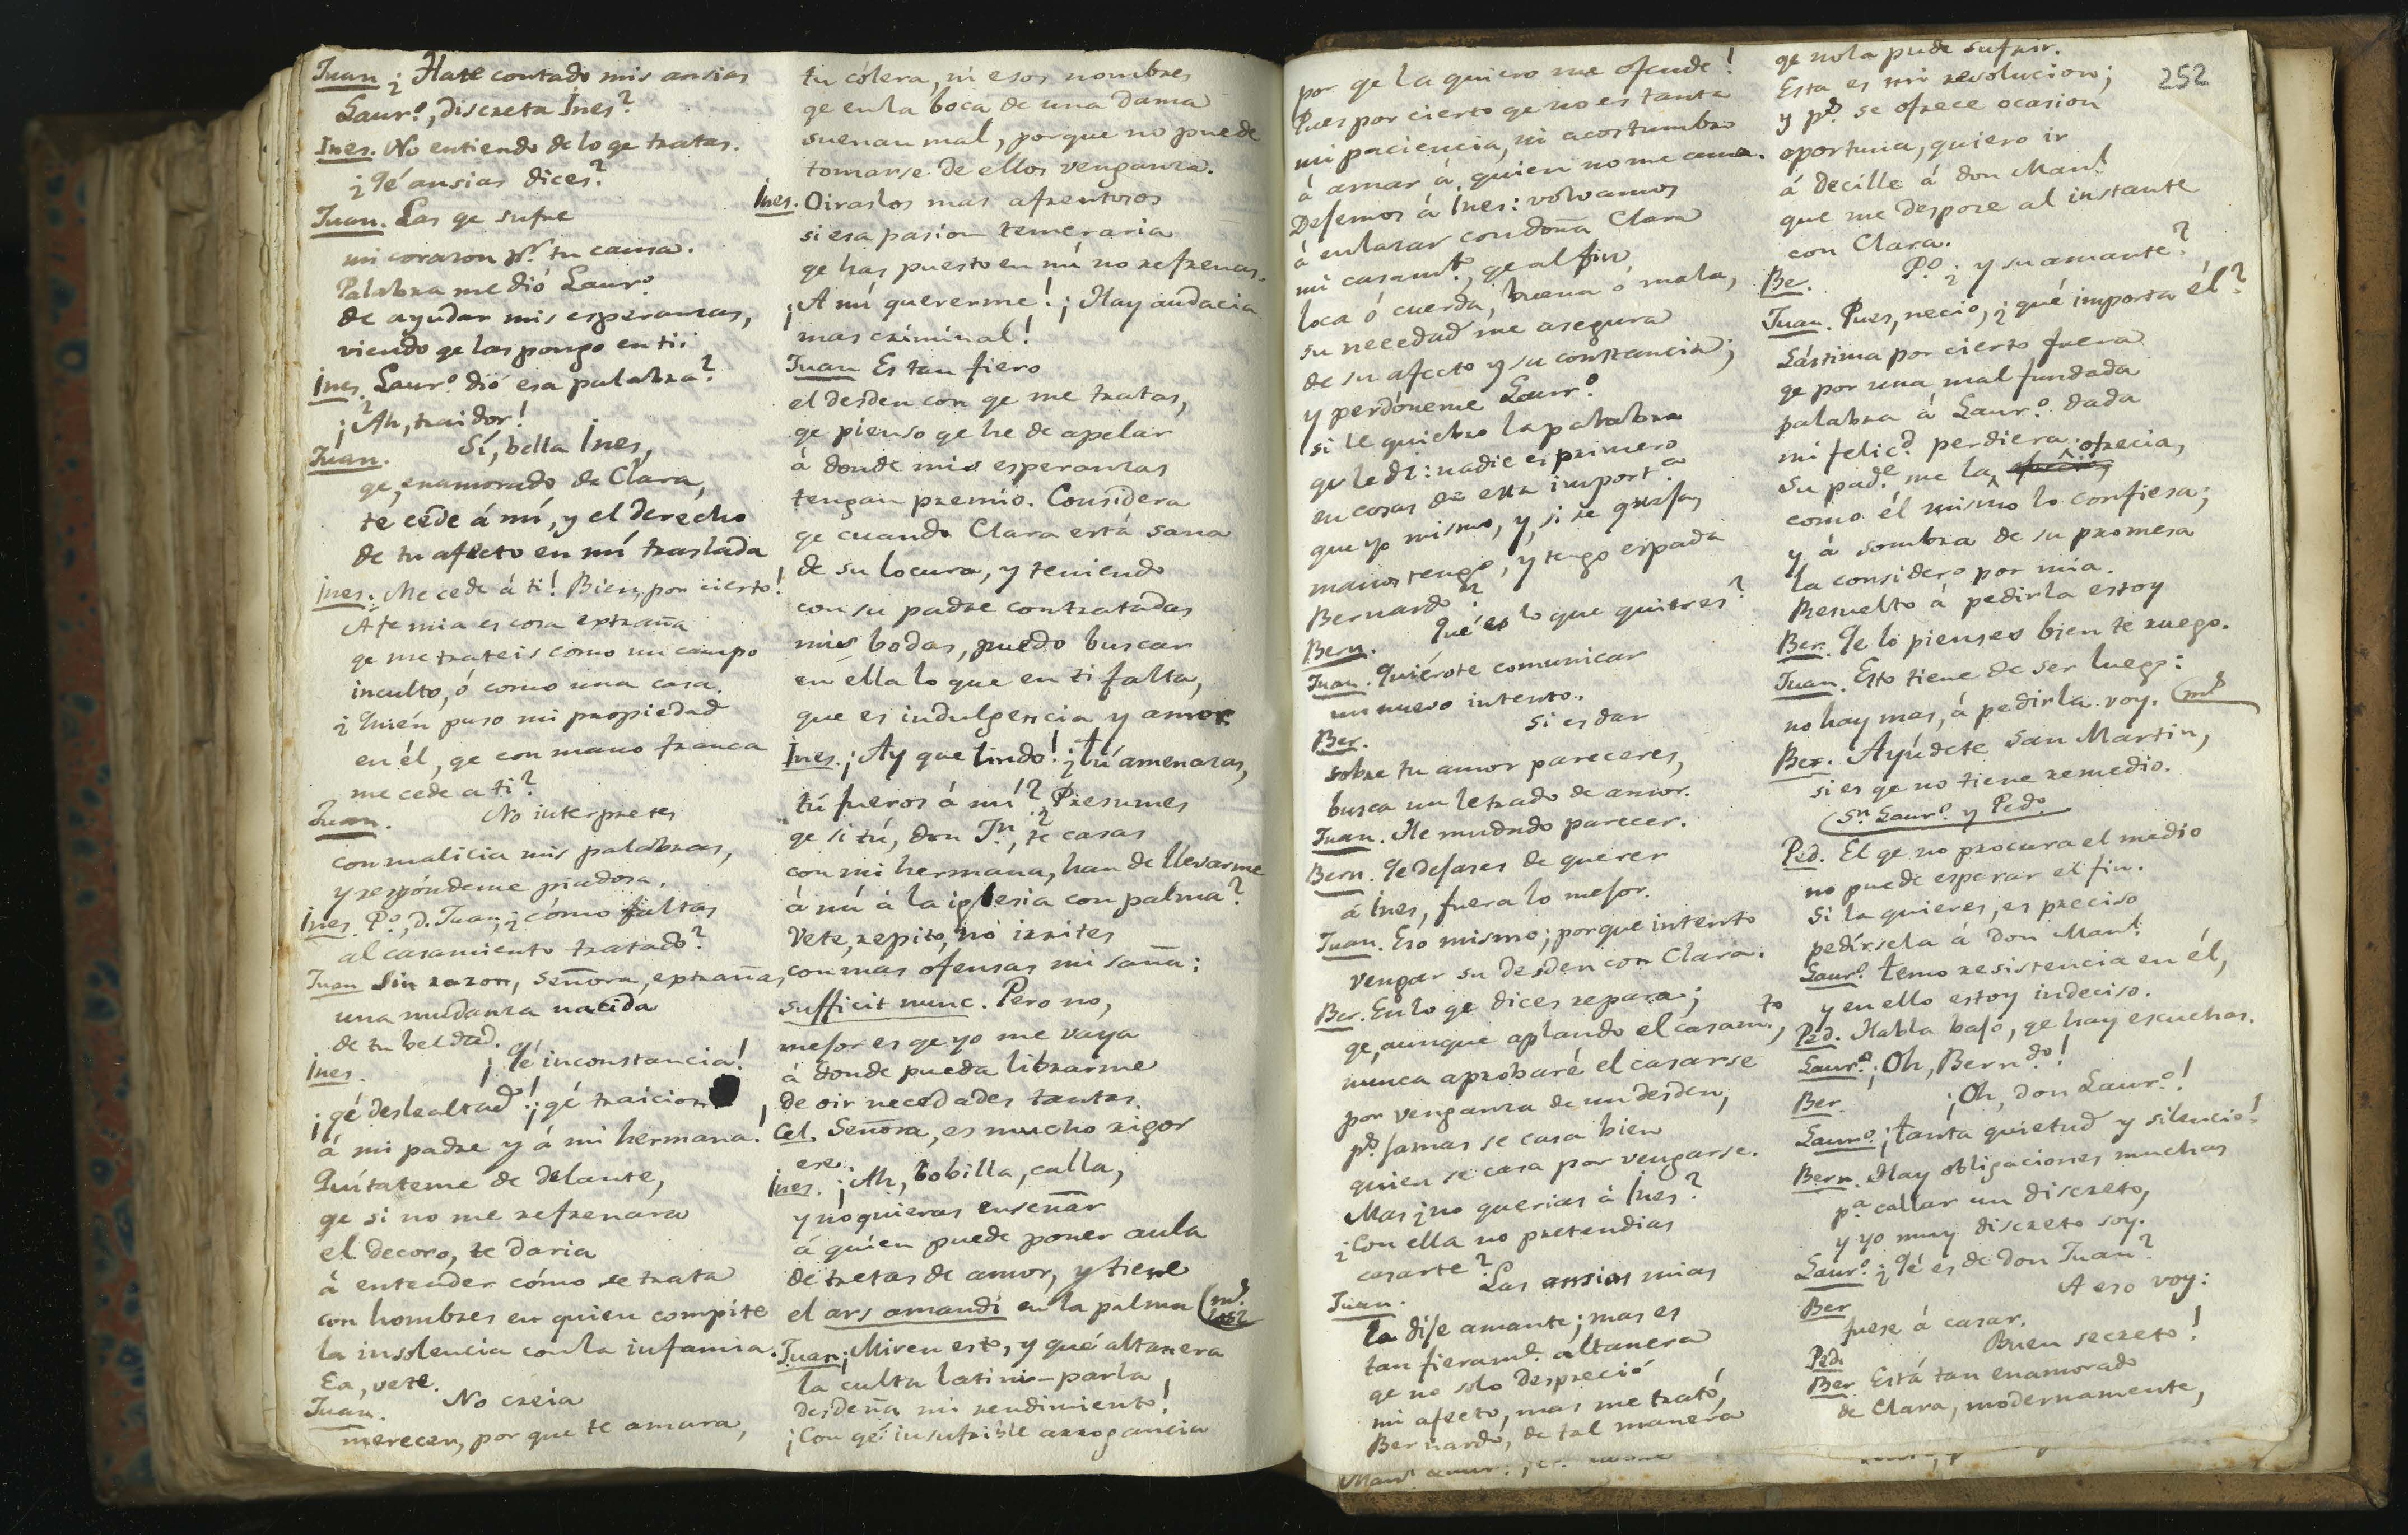 Juan ¿Hate contado mis ansias
Laurº, discreta Ines?
Ines. No entiendo de lo qe tratas.
¿Qé ansias dices?
Juan. Las qe sufre
mi corazon pr. tu causa.
Palabra me dió Laurº
de ayudar mis esperanzas,
viendo qe las pongo en ti.
Ines. ¿Laurº dió esa palabra?
¡Ah, traidor!
Juan. Sí, bella Ines,
qe, enamorado de Clara,
te cede á mí, y el derecho
de tu afecto en mí traslada
Ines. Me cede á ti! Bien, por cierto!
Á fe mia es cosa extraña
qe me trateis como un campo
inculto, ó como una casa.
¿Quién puso mi propiedad
en él, qe con mano franca
me cede a ti?
Juan. No interpretes
con malicia mis palabras,
y respóndeme piadosa.
Ines. Pº, d. Juan, ¿cómo faltas
al casamiento tratado?
Juan Sin razon, señora, extrañas
una mudanza nacida
de tu beldad.
Ines. ¡Qé inconstancia!
¡qé deslealtad! ¡qé traicion,
á mi padre y á mi hermana!
Quítateme de delante,
qe si no me refrenara
el decoro, te daria
á entender cómo se trata
con hombres en quien compite
la insolencia con la infamia.
Ea, vete.
Juan. No creia
merecer, por que te amara,
tu cólera, ni esos nombres
qe en la boca de una dama
suenan mal, porque no puede
tomarse de ellos venganza.
Ines. Oiraslos mas afrentosos
si esa pasion temeraria
qe has puesto en mí no refrenas.
¡A mí quererme! ¡Hay audacia
mas criminal!
Juan Es tan fiero
el desden con qe me tratas,
qe pienso qe he de apelar
á donde mis esperanzas
tengan premio. Considera
qe cuando Clara está sana
de su locura, y teniendo
con su padre contratadas
mis bodas, puedo buscar
en élla lo que en ti falta,
que es indulgencia y amor.
Ines. ¡Ay que lindo! ¿Tú amenazas,
tú fueros á mí? ¿Presumes
qe si tú, don Jn., te casas
con mi hermana, han de llevarme
á mí á la iglesia con palma?
Vete, repito, no irrites
con mas ofensas mi saña:
sufficit nunc. Pero no,
mejor es qe yo me vaya
á donde pueda librarme
de oir necedades tantas.
Cel. Señora, es mucho rigor
ese.
Ines. ¡Ah, bobilla, calla,
y no quieras enseñar
á quien puede poner aula
de tretas de amor, y tiene
el ars amandi en la palma
Juan ¡Miren esto, y qué altanera
la culta latini-parla
desdeña mi rendimiento!
¡Con qé insufrible arrogancia
por qe la quiero me ofende!
Pues por cierto qe no es tanta
mi paciencia, ni acostumbro
á amar á quien no me ama.
Dejemos á Ines: volvamos
á enlazar con doña Clara
mi casamto, qe al fin
loca ó cuerda, buena ó mala,
su necedad me asegura
de su afecto y su constancia;
y perdóneme Laurº
si le quiebro la palabra
qe le dí: nadie es primero
en cosas de esta importa
que yo mismo, y, si se queja,
manos tengo, y tengo espada
Bernardo?
Bern. Qué es lo que quieres?
Juan. Quiérote comunicar
un nuevo intento.
Ber. Si es dar
sobre tu amor pareceres,
busca un letrado de amor.
Juan. He mudado parecer.
Bern. Qe dejases de querer
á Ines, fuera lo mejor.
Juan. Eso mismo; porque intento
vengar su desden con Clara.
Ber. En lo qe dices repara;
qe, aunque aplaudo el casamto,
nunca aprobaré el casarse
por venganza de un desden,
pº jamas se casa bien
quien se casa por vengarse.
Mas ¿no querias á Ines?
¿Con ella no pretendias
casarte?
Juan. Las ansias mias
la dije amante; mas es
tan fieramte altanera
qe no solo despreció
mi afecto, mas me trató,
Bernardo, de tal manera
qe no la pude sufrir.
Esta es mi resolucion;
y ps se ofrece ocasion
oportuna, quiero ir
á decille á don Manl
que me despose al instante
con Clara.
Ber. Pº ¿y su amante?
Juan. Pues, necio, ¿qué importa él?
Lástima por cierto fuera
qe por una mal fundada
palabra á Laurº dada
mi felicd perdiera.
Su pade me la ofrecia,
como él mismo lo confiesa;
y á sombra de su promesa
la considero por mia.
Resuelto á pedirla estoy
Ber. Qe lo pienses bien te ruego.
Juan. Esto tiene de ser luego:
no hay mas, á pedirla voy.
Ber. Ayúdete San Martin,
si es qe no tiene remedio.
Sn Laurº y Pedº
Ped. El qe no procura el medio
no puede esperar el fin.
Si la quieres, es preciso
pedírsela á don Manl
Laurº. Temo resistencia en él,
y en ello estoy indeciso.
Ped. Habla bajo, qe hay escuchas.
Laurº. ¡Oh, Berndo!
Ber. ¡Oh, don Laurº!
Laurº. ¡Tanta quietud y silencio!
Bern. Hay obligaciones muchas
pa callar un discreto,
y yo muy discreto soy.
Laurº. ¿Qé es de don Juan?
Ber A eso voy:
fuese á casar.
Ped. Buen secreto!
Ber Está tan enamorado
de Clara, modernamente,
252